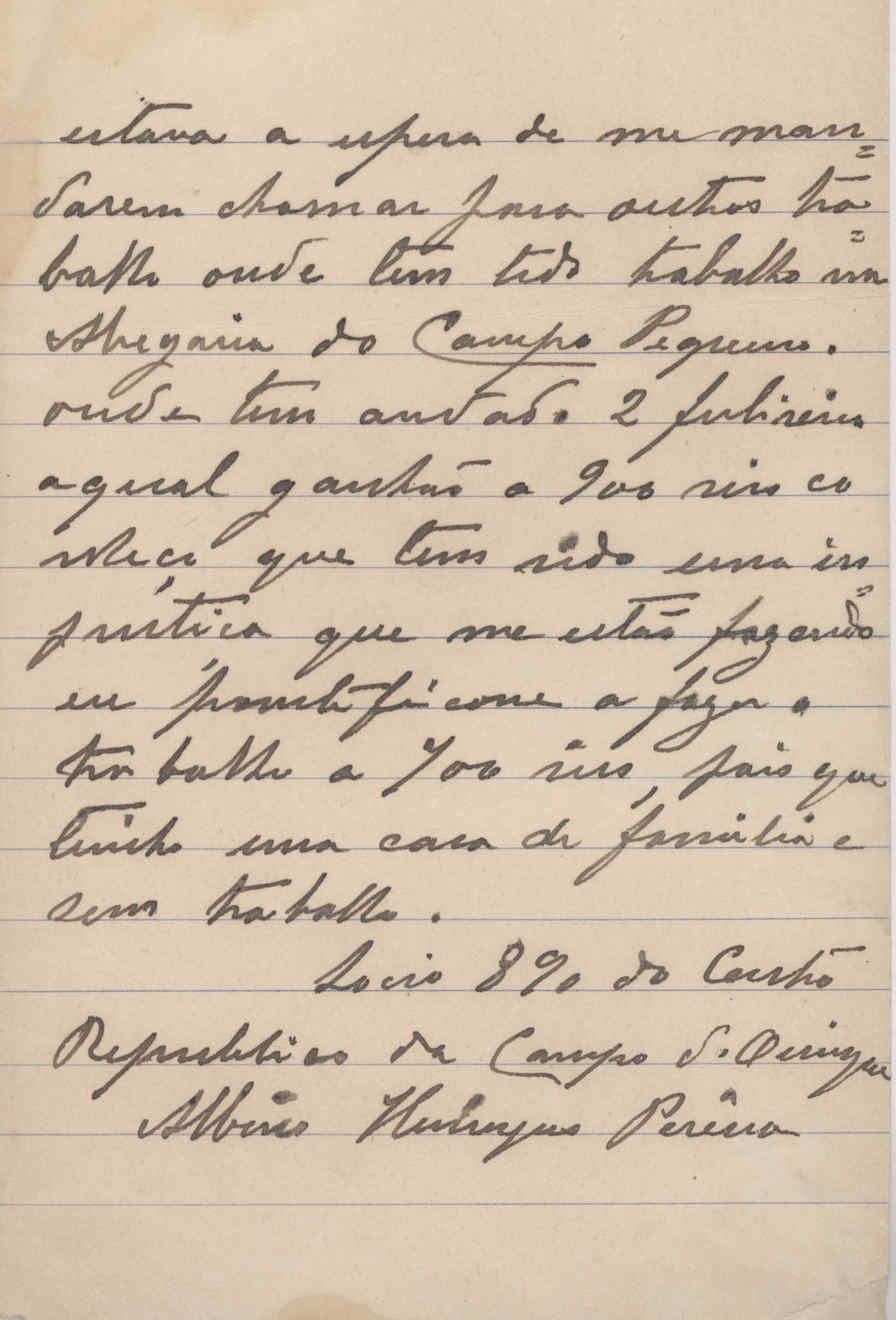 estava a espera de me man=
darem chamar para outros tra=
balho onde tem tido trabalho na
Abegaria do Campo Pequeno.
onde tem andado 2
a qual ganhão a 900 reis co
nheço que tem sido uma in=
justiça que me estão fazendo
eu a fazer o
trabalho a 700 reis, pois que
tinho uma casa de familia e
sem trabalho.
Socio 890 do Centro
Republicao da Campo d'Ourique
Albino Henriques Pereira